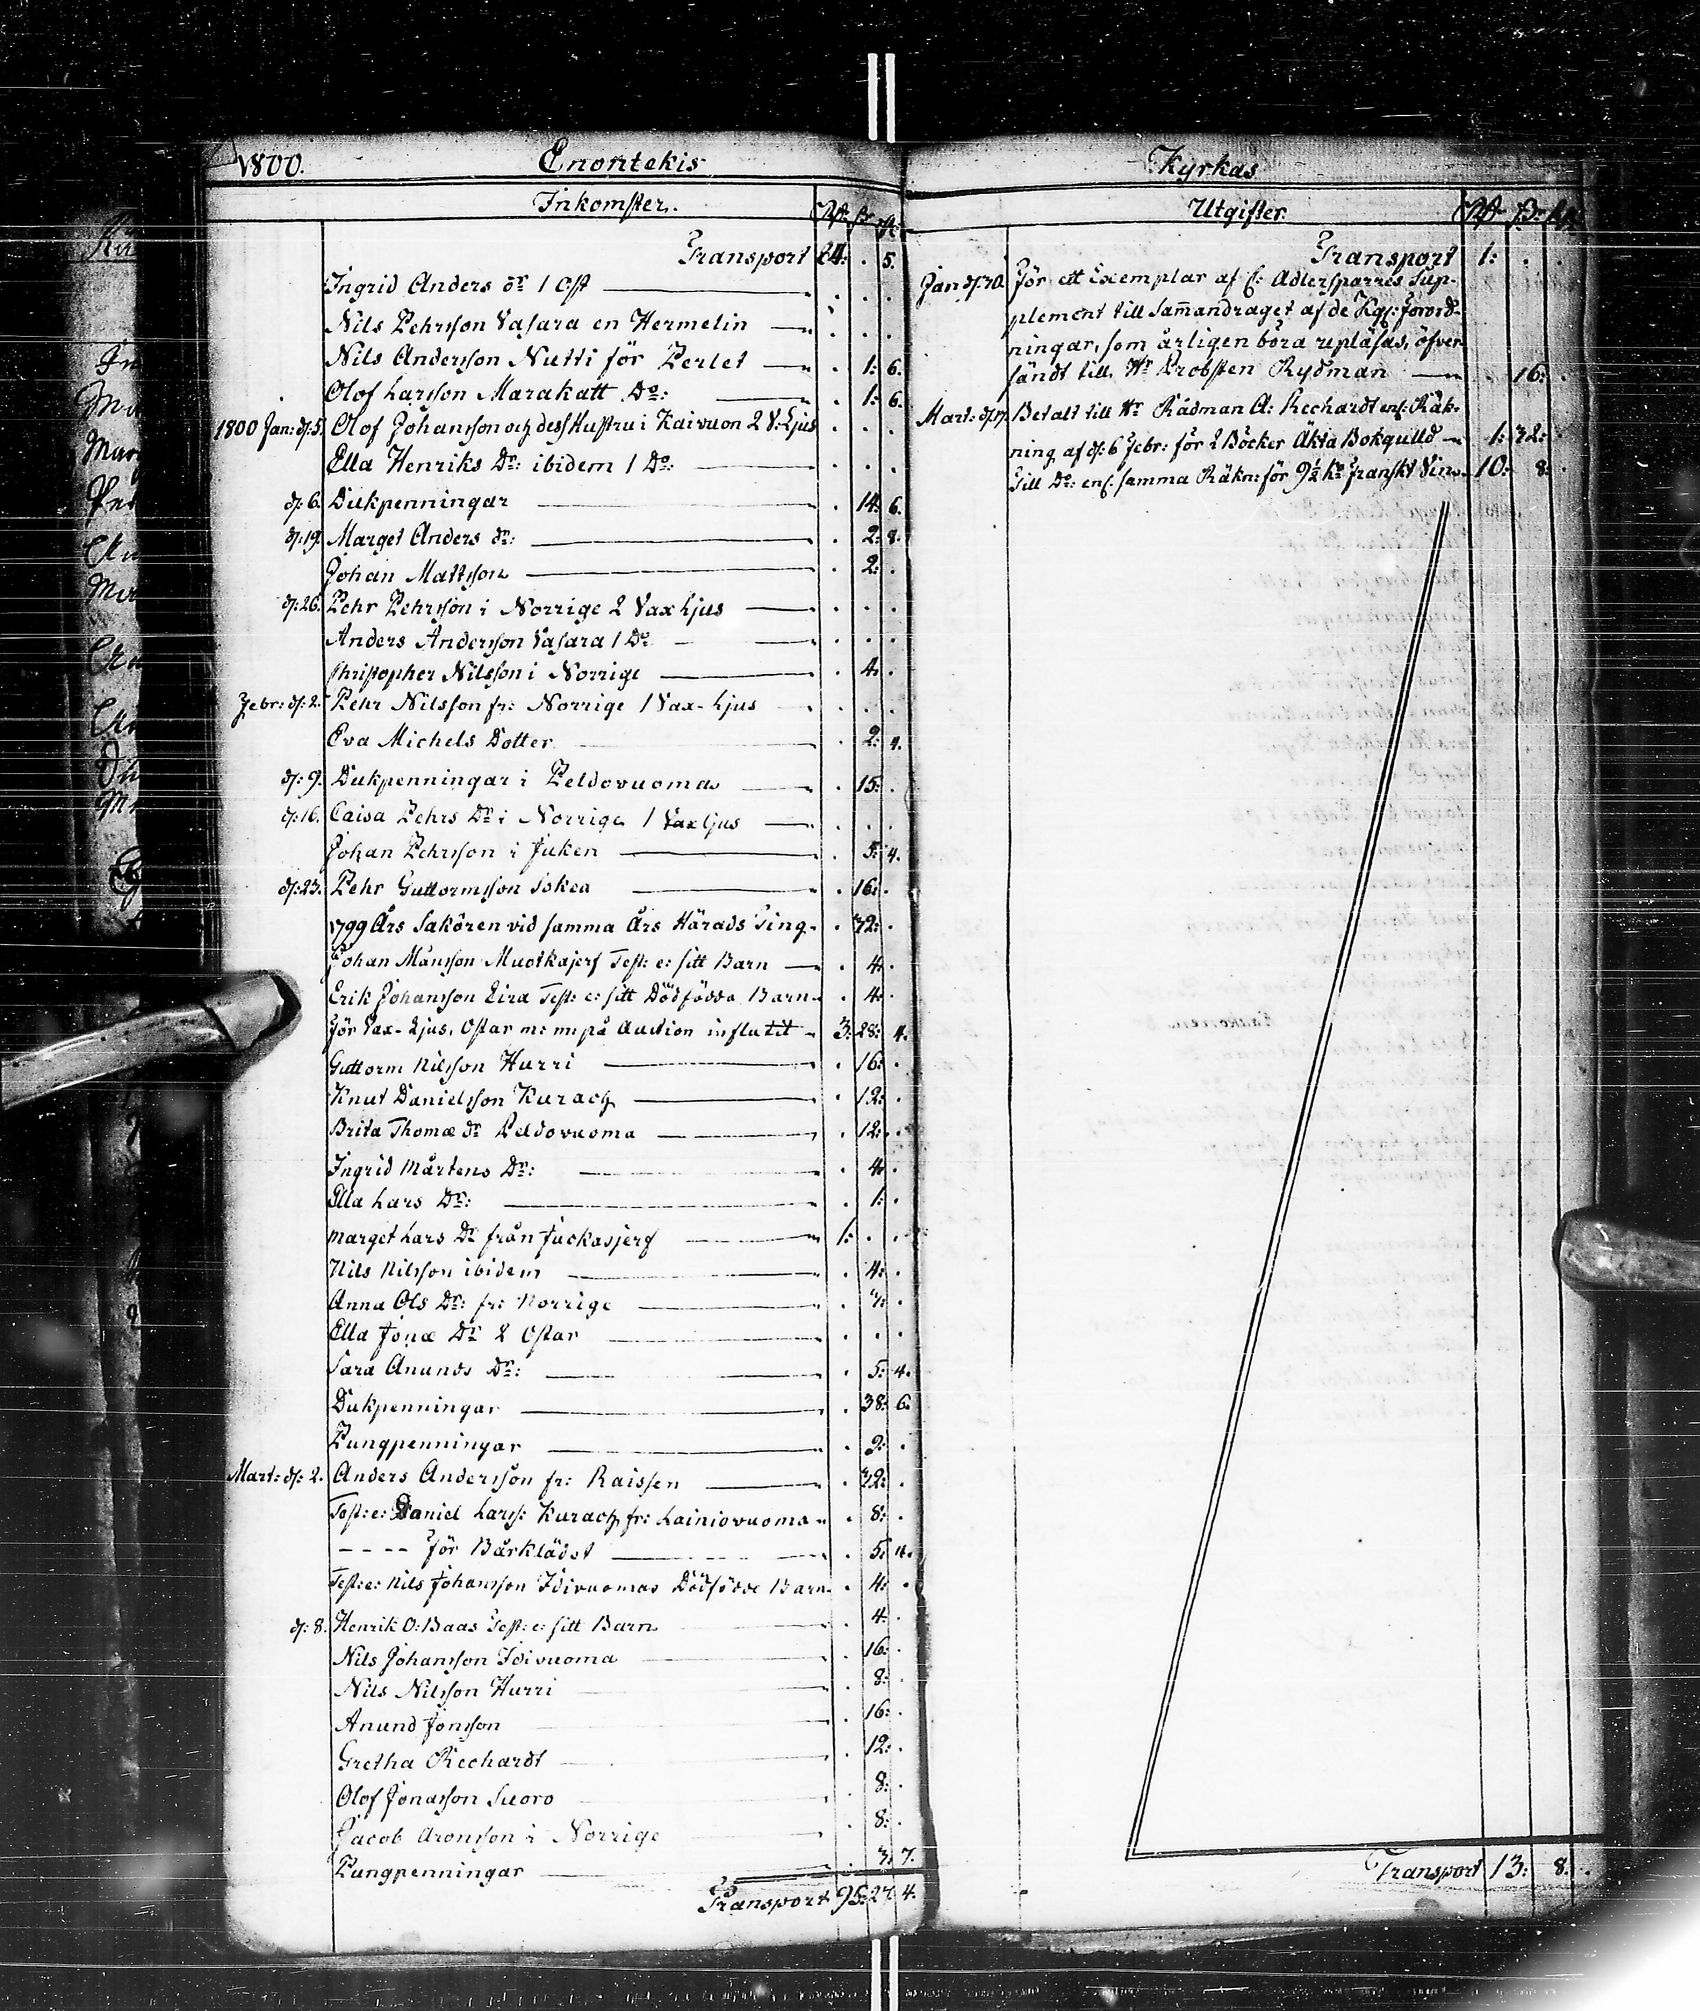 1800. Enontekis
Inkomster. Rdr ß rst:
Transport 24: . 5.
Ingrid Anders dr 1 Ost . . .
Nils Pehrsson Vasara en Hermelin . . .
Nils Andersson Nutti för Perlet . 1: 6.
Olof Larsson Marakatt Do: . 1: 6.
1800 Jan: d: 5. Olof Johansson och dess Hustru i Kaivuon 2 V: Ljus . . .
Ella Henriks Dr: ibidem 1 Do: . . .
d: 6. Dukpenningar . 14: 6.
d: 19. Marget Anders dr: . 2: 8.
Johan Mattsson . 2: .
d: 26. Pehr Pehrsson i Norrige 2 Vax Ljus . . .
Anders Andersson Vasara 1 Do . . .
Christopher Nilsson i Norrige . 4: .
Febr: d: 2. Pehr Nilsson fr: Norrige 1 Vax-Ljus . . .
Eva Michels Dotter . 2: 4.
d: 9. Dukpenningar i Peldovuoma . 15: .
d: 16. Caisa Pehrs Dr i Norrige 1 Vax ljus . . .
Johan Pehrsson i Juken . 5: 4.
d: 23. Pehr Guttormsson Sokea . 16: .
1799 Års Sakören vid samma Års Härads Ting . 32: .
Johan Månsson Muotkajerf Test: e: sitt Barn . 4: .
Erik Johansson Eira Test: e: sitt Dödfödda Barn . 4: .
För Vax-Ljus, Ostar m: m: på Auction influtit 3: 28: 4.
Guttorm Nilsson Hurri . 16: .
Knut Danielsson Kurach . 12: .
Brita Thomæ dr Peldovuoma . 12: .
Ingrid Mårtens Dr: . 4: .
Ella Lars Dr: . 1: .
Marget Lars Dr från Juckasjerf 1: . .
Nils Nilsson ibidem . 4: .
Anna Ols Dr: fr: Norrige
Ella Jonæ Dr 2 Ostar . . .
Sara Anunds Dr: . 5: 4.
Dukpenningar . 38: 6.
Pungpenningar . 9: .
Mart: d: 2. Anders Andersson fr: Raissen . 32: .
Test: e: Daniel Larss: Kurach fr: Lainiovuoma . 8: .
- - - - För Bårklädet . 5: 4.
Test: e: Nils Johansson Idivuomas Dödfödde Barn . 4: .
d: 8. Henrik O: Baas Test: e: sitt Barn . 4: .
Nils Johansson Idivuoma . 16: .
Nils Nilsson Hurri . 8: .
Anund Jonsson . 16: .
Gretha Rechardt . 12: .
Olof Jonasson Suoro . 8: .
Jacob Aronsson i Norrige . 8: .
Pungpenningar . 3: 7.
Transport 95: 27. 4.
Kyrkas
Utgifter Rdr ß: rst:
Transport 1: . .
Jan d: 30. För ett Exemplar af C: Adlersparres Sup-
plement till Sammandraget af de Kgl: Förord-
ningar, som årligen böra uppläsas, öfver-
sändt till Hr Probsten Rydman . 16: .
Mart: d: 17. Betalt till Hr Rådman A: Rechardt enl: Räk-
ning af d: 6 Febr: för 2 Böcker Äkta Bokguld 1: 32: .
Till Do: enl: samma Räkn: för 9½ Kr Franskt Vin 10: 8: .
Transport 13: 8: .